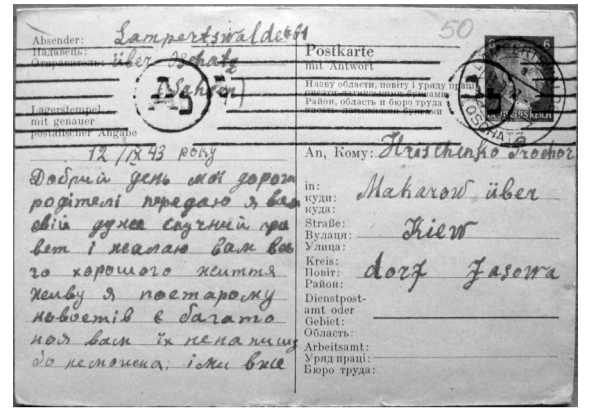 50
Absender: Lampertswalde 61
Надавець:
Отправитель: über Oschatz
(Sachsen)
Lagerstempel
mit genauer
postalischer Angabe
12/IX 43 року
Добрий день мої дорогі
родітелі передаю я вам
свій дуже скучний при
вет і желаю вам всьо
го хорошого життя
живу я постарому
новостів є багато
но я вам їх ненапишу
бо неможна, і ми вже
Postkarte
mit Antwort
Назву области, повіту і уряду праці
писати латинськими буквами
Район, область и бюро труда
писать латинскими буквами
6
An, Кому: Hrischenko Prochor
in:
куди: Makarow über
куда:
Straße:
Вулаця: Kiew
Улица:
Kreis:
Повіт: dorf Jasowa
Район:
Dienstpost-
amt oder
Gebiet:
Область:
Arbeitsamt:
Уряд праці:
Бюро труда: